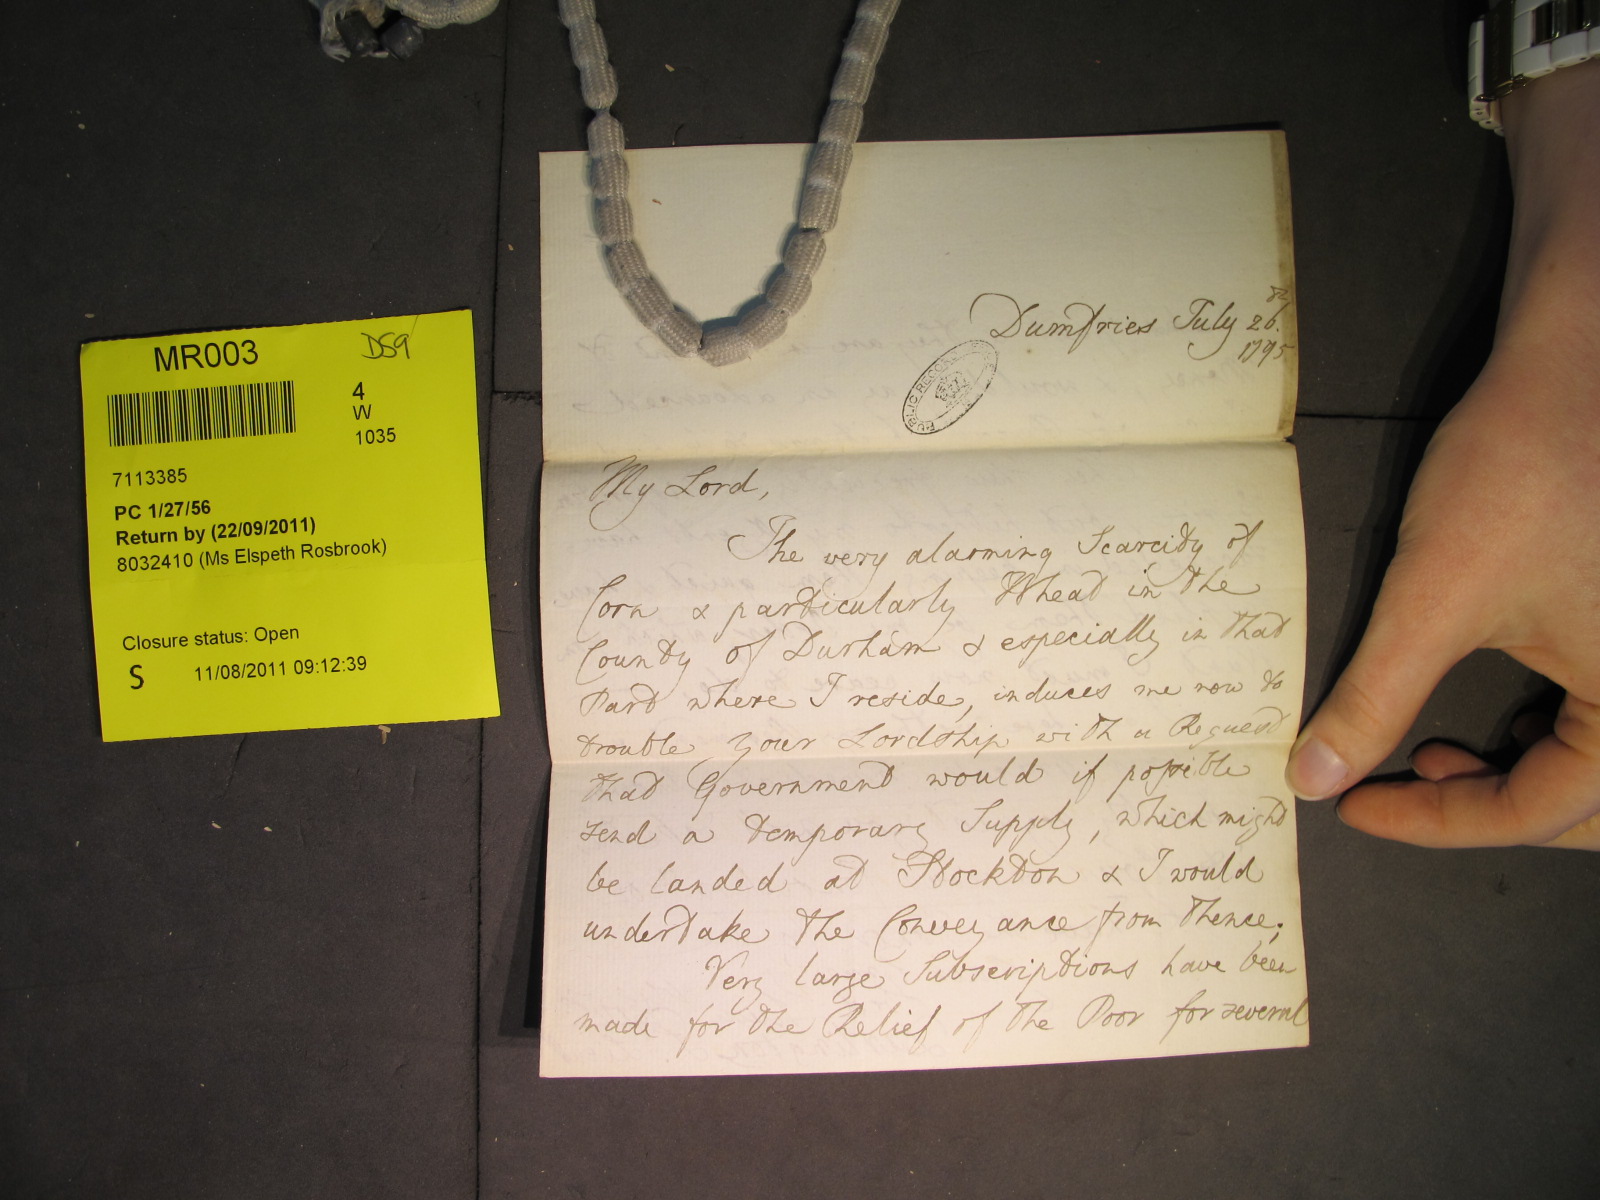 MR003
DS9
4
W
1035
7113385
PC 1/27/56
Return by (22/09/2011)
8032410 (Ms Elspeth Rosbrook)
Closure status: Open
S 11/08/2011 09:12:39
Dumfries July 26.th
1795
PUBLIC RECORD
My Lord,
The very alarming Scarcity of
Corn & particularly Wheat in the
County of Durham & especially in that
Part where I reside, induces me now to
trouble your Lordship with a Request
that Government would if possible
send a temporary Supply, which might
be landed at Stockton & I would
undertake the Conveyance from thence;
Very large Subscriptions have been
made for the Relief of the Poor for several